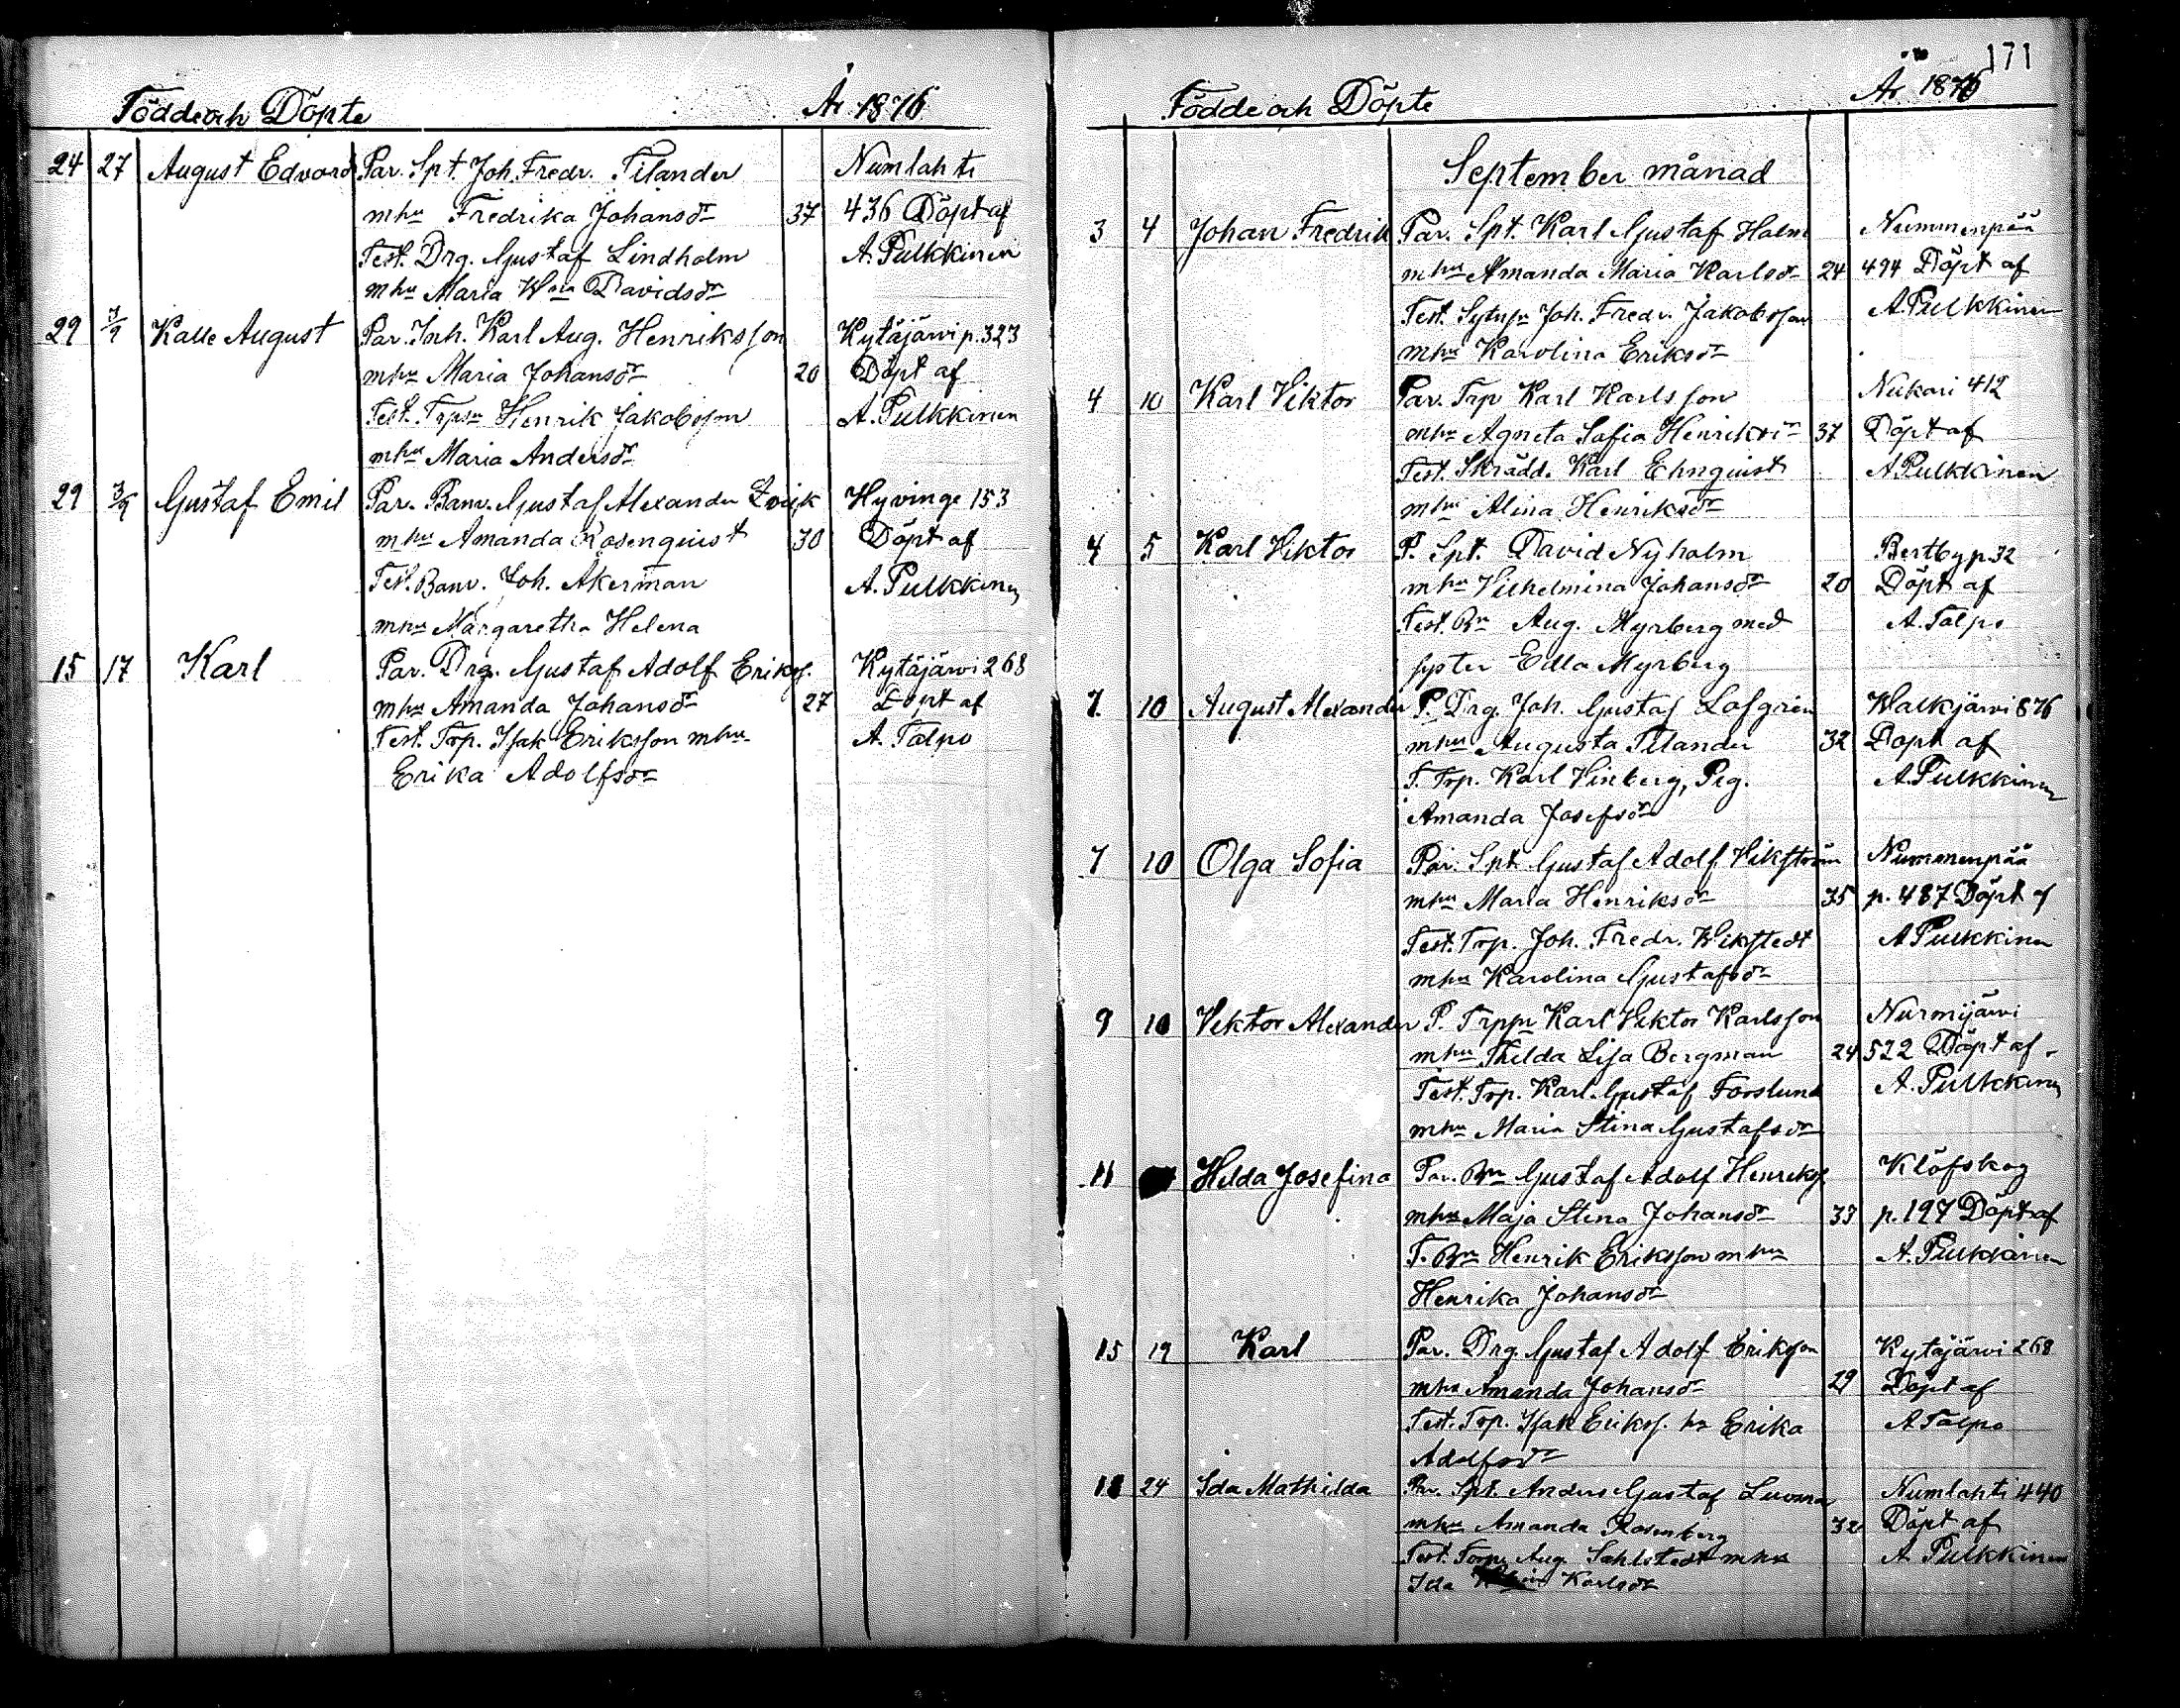 Födde och Döpte År 1876
24 27 August Edvard Par. Spt. Joh. Fredr. Tilander Numlahti
mhu Fredrika Johansdr 37 436 Döpt af
Test. Drg. Gustaf Lindholm A. Pulkkinen
mhu Maria Wma Davidsdr
29 3/9 Kalle August Par. Inh. Karl Aug. Henriksson Kytäjärvi p. 323
mhu Maria Johansdr 20 Döpt af
Test. Trpsn Henrik Jakobsson A. Pulkkinen
mhu Maria Andersdr
29 3/9 Gustaf Emil Par. Banv. Gustaf Alexander Hyvinge 153
mhu Amanda Rosenquist 30 Döpt af
Test. Banv. Joh. Åkerman A. Pulkkinen
mhu Margaretha Helena
15 17 Karl Par. Drg. Gustaf Adolf Eriks. Kytäjärvi 268
mhu Amanda Johansdr 27 Döpt af
Test. Trp. Isak Eriksson mhu A. Talpo
Erika Adolfsdr
171
Födde och Döpte År 1876
September månad
3 4 Johan Fredrik Par. Spt. Karl Gustaf Holm Nummenpää
mhu Amanda Maria Karlsdr 24 494 Döpt af
Test. Joh. Fredr. Jakobsson A. Pulkkinen
mhu Karolina Eriksdr
4 10 Karl Viktor Par. Trp Karl Karlsson Nukari 412
mhu Agneta Sofia Henriksdr 37 Döpt af
Test. Skrädd. Karl Ehnquist A. Pulkkinen
mhu Alina Henriksdr
4 5 Karl Viktor P. Spt. David Nyholm Bertby p. 32
mhu Vilhelmina Johansdr 20 Döpt af
Test. Bn Aug. Myrberg med A. Talpo
syster Edla Myrberg
7. 10 August Alexander P. Drg. Joh. Gustaf Löfgrén Walkjärvi 876
mhu Augusta Tilander 32 Döpt af
T. Trp. Karl Vinberg, Pig. A. Pulkkinen
Amanda Josefsdr
7 10 Olga Sofia Par. Spt. Gustaf Adolf Vikström Nummenpää
mhu Maria Henriksdr 35 p. 487 Döpt af
Test. Trp. Joh. Fredr. Wikstedt A Pulkkinen
mhu Karolina Gustafsdr
9 10 Viktor Alexander P. Trpsn Karl Viktor Karlsson Nurmijärvi
mhu Thilda Lisa Bergman 24 522 Döpt af
Test. Trp. Karl Gustaf Forslund A. Pulkkinen
mhu Maria Stina Gustafsdr
11 Hilda Josefina Par. Bn Gustaf Adolf Henrikss. Klöfskog
mhu Maja Stina Johansdr 33 p. 197 Döpt af
T. Bn Henrik Eriksson mhu A. Pulkkinen
Henrika Johansdr
15 19 Karl Par. Drg. Gustaf Adolf Eriksson Kytäjärvi 268
mhu Amanda Johansdr 29 Döpt af
Test. Trp. Isak Erikss. hu Erika A Talpo
Adolfsdr
18 24 Ida Mathilda Par. Spt. Anders Gustaf Numlahti 440
mhu Amanda Rosenberg 32 Döpt af
Test. Torp. Aug. Sahlstedt mhu A Pulkkinen
Ida Karlsdr